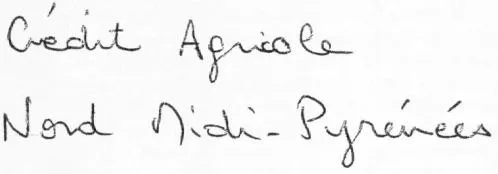 Crédit Agricole
Nord Midi-Pyrénéés